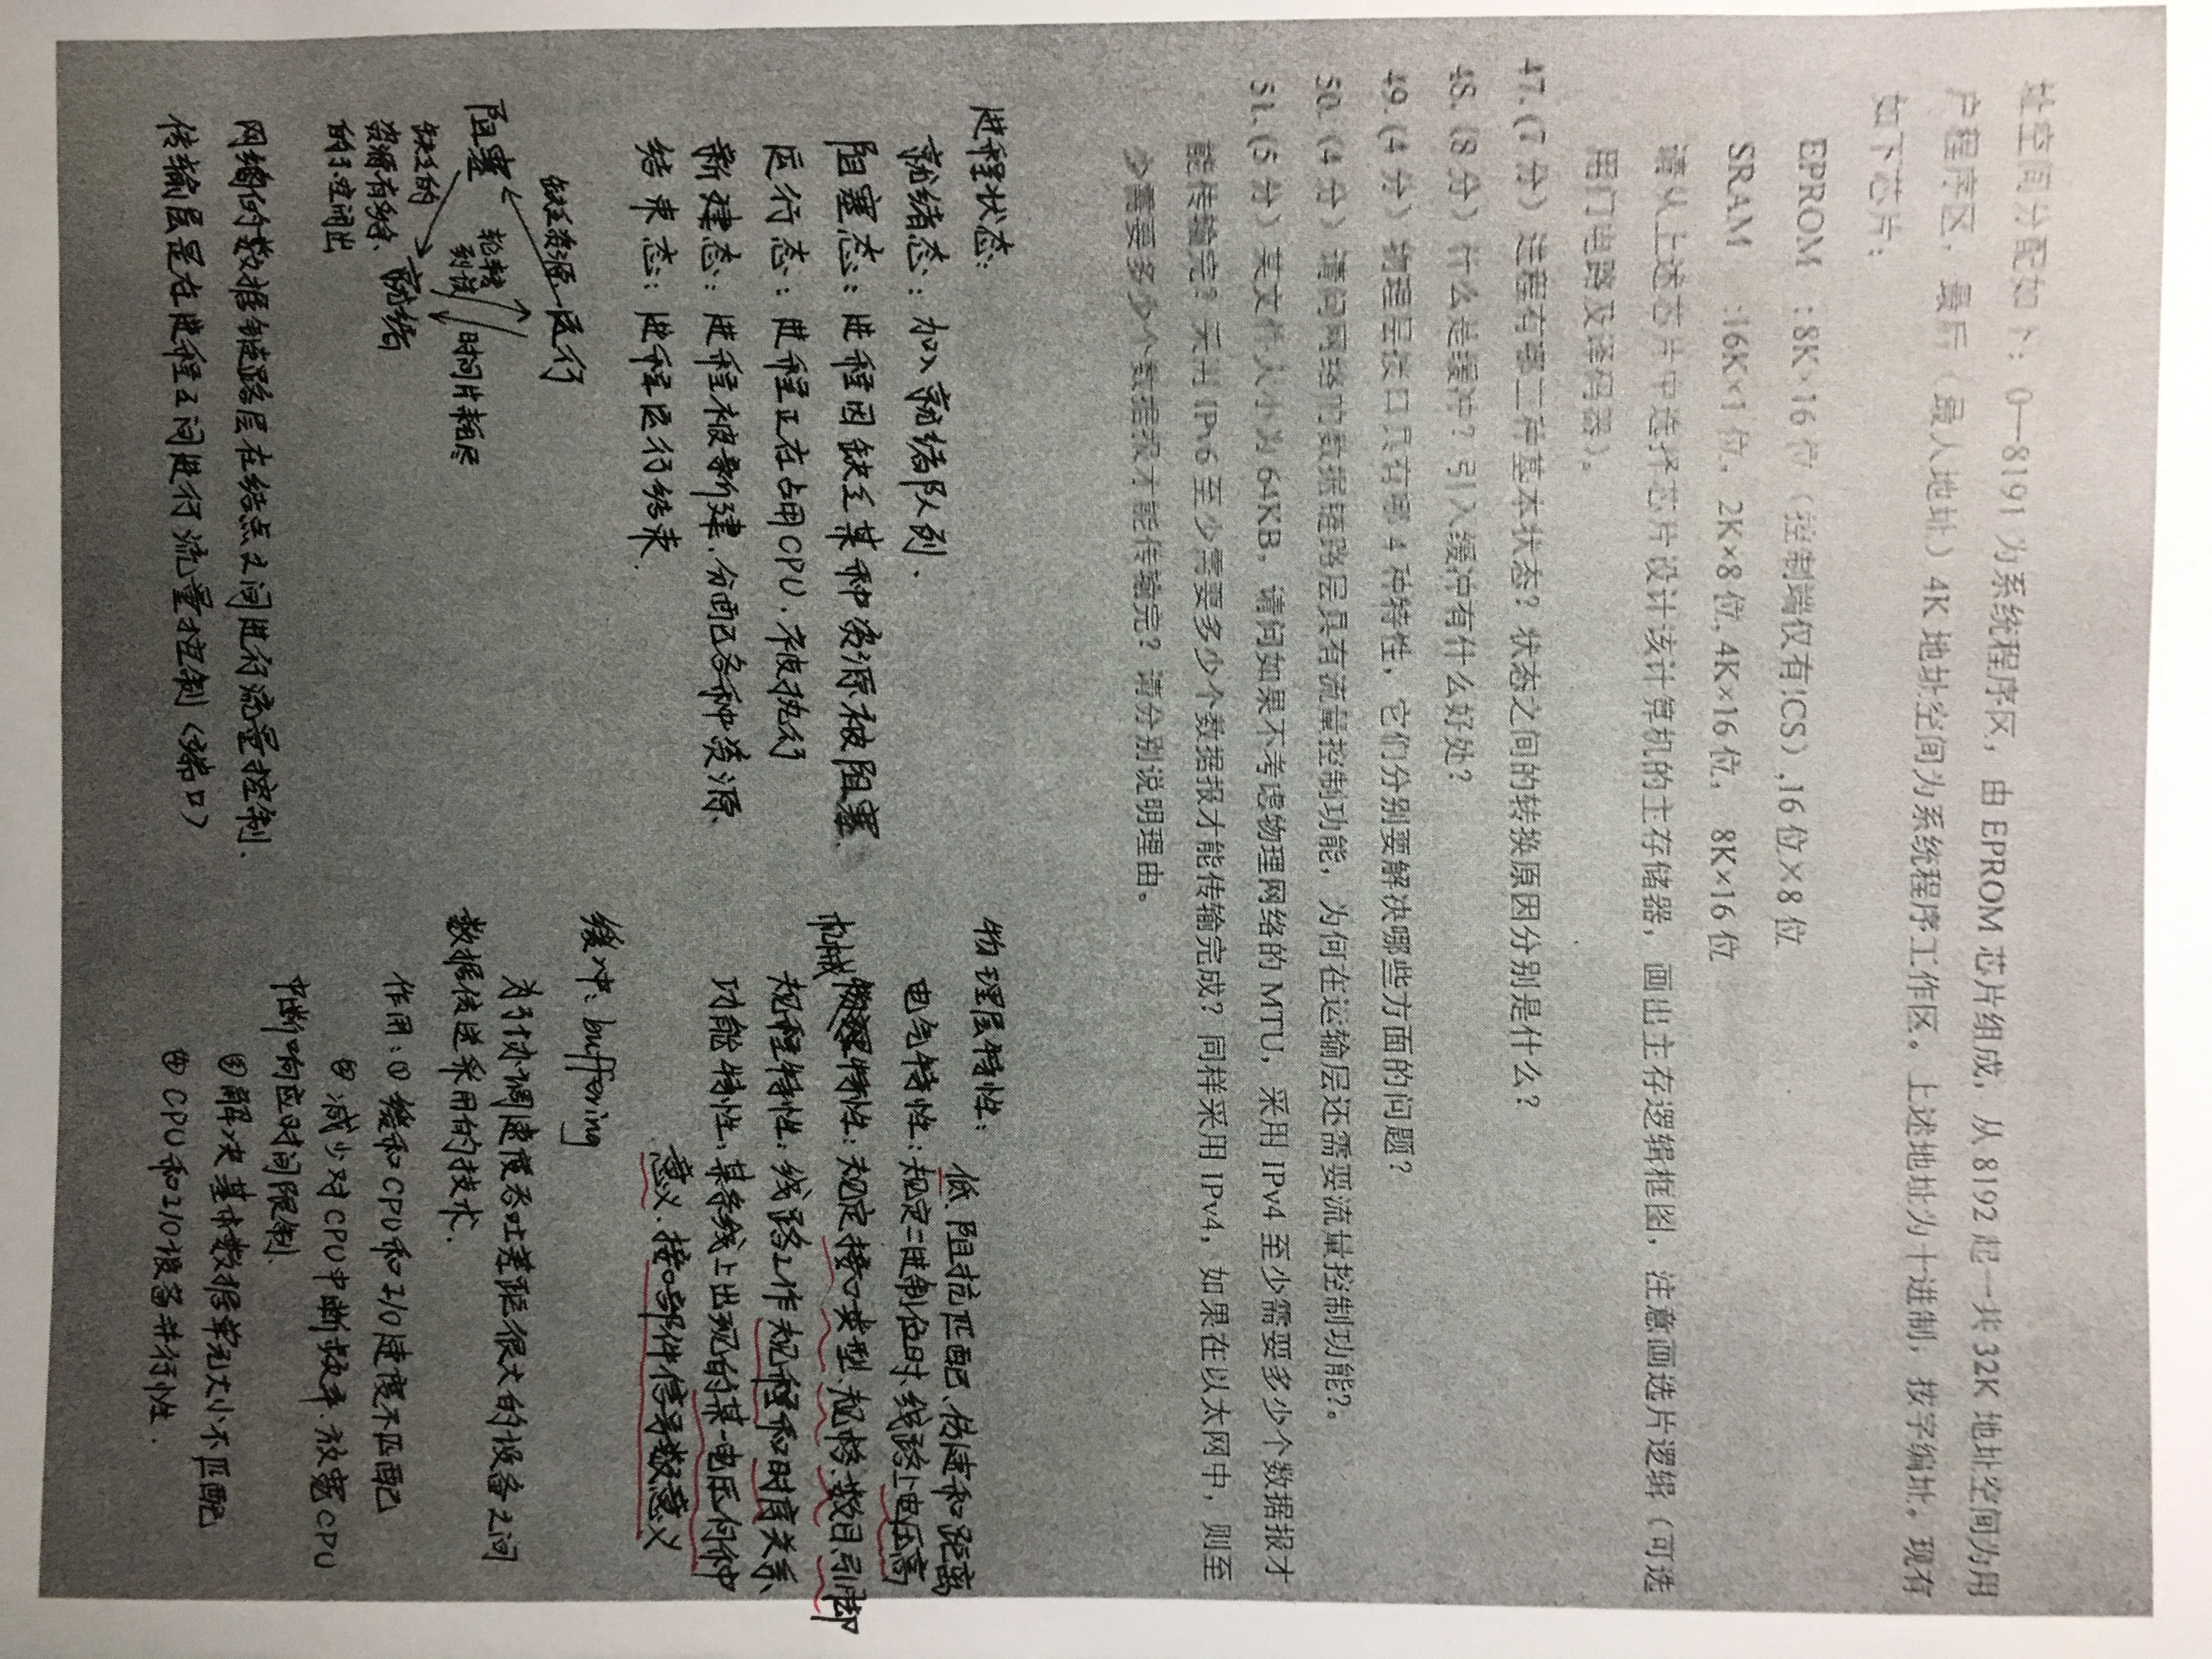 址空间分配如下：0—8191 为系统程序区，由 EPROM 芯片组成，从 8192 起一共 32K 地址空间为用
户程序区，最后（最大地址）4K 地址空间为系统程序工作区。上述地址为十进制，按字编址。现有
如下芯片：
EPROM ：8K×16 位（控制端仅有!CS）,16 位×8 位
SRAM :16K×1 位，2K×8 位, 4K×16 位，8K×16 位
请从上述芯片中选择芯片设计该计算机的主存储器，画出主存逻辑框图，注意画选片逻辑（可选
用门电路及译码器）。
47. (7 分) 进程有哪三种基本状态？状态之间的转换原因分别是什么？
48. (8 分) 什么是缓冲？引入缓冲有什么好处？
49. (4 分) 物理层接口具有哪 4 种特性，它们分别要解决哪些方面的问题？
50. (4 分) 请问网络的数据链路层具有流量控制功能，为何在运输层还需要流量控制功能？。
51. (6 分) 某文件大小为 64KB，请问如果不考虑物理网络的 MTU，采用 IPv4 至少需要多少个数据报才
能传输完？采用 IPv6 至少需要多少个数据报才能传输完成？同样采用 IPv4，如果在以太网中，则至
少需要多少个数据报才能传输完？请分别说明理由。
进程状态：
就绪态：加入就绪队列.
阻塞态：进程因缺乏某种资源被阻塞
运行态：进程正在占用CPU、被执行
新建态：进程被新建.分配各种资源.
结束态：进程运行结束.
缺乏资源 运行
阻塞 轮转到该 时间片耗尽
缺乏的资源有多余、的了空闲出 就绪
网络的数据链路层在结点之间进行流量控制.
传输层是在进程之间进行流量控制（端口）
物理层特性：
低 阻抗匹配、传速和距离
电气特性：规定二进制位时、线路上电压高
机械特性：规定接口类型、规格、数目、引脚
规程特性：线路工作规程和时序关系.
功能特性：某条线上出现的某一电压何种
意义.接口部件信号数意义
缓冲：buffering
为了协调速度吞吐差距很大的设备之间
数据传送采用的技术.
作用：① 缓和CPU和I/O速度不匹配
② 减少对CPU中断频率.放宽CPU
中断响应时间限制.
③ 解决基本数据单元大小不匹配
④ CPU和I/O设备并行性.